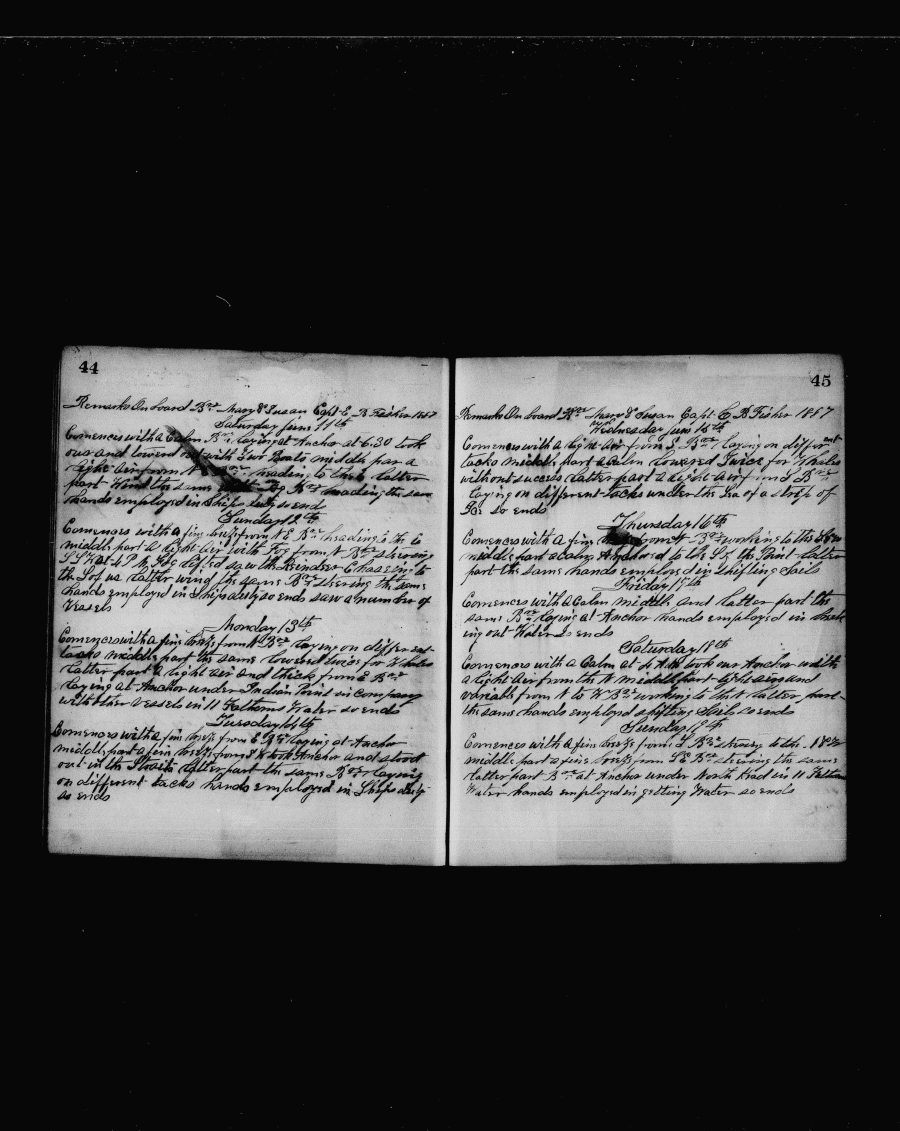 44
Remarks On board Bre Mary & Susan Capt E. B Fisher 1887
Saturday June 11th
Comences with a Calm Bre laying at Anchor at 6.30 took
our and lowerd with four Boats middle par a
light air from N heading to the latter
part Wind the same Bre heading the same
hands employed in Ships duty so ends
Sunday 12th
Comences with a fine breeze from N E Bre heading to the
middle part a light air with Fog from N Bre steering
at 4 P M Fog lifted saw the Reindeer Chaseing to
the of us latter wind the same Bre steering the same
hands employed in Ships duty so ends saw a number of
Vessels
Monday 13th
Comences with a fine breeze from Bre laying on different
tacks middle part the same lowerd twice for Whales
latter part a light air and thick from E Bre
laying at Anchor under Indian Point in company
with other Vessels in 11 Fathoms Water so ends
Tuesday 14th
Comences with a fine breeze from E Bre laying at Anchor
middle part a fine breeze from took Anchor and stood
out in the Straits latter part the same Bre laying
on different tacks hands employed in Ships duty
so ends
45
Remarks On board Bre Mary & Susan Capt E B Fisher 1887
Wednesday June 15th
Comences with a light air from S Bre laying on different
tacks middle part a Calm lowered Twice for Whales
without success latter part a light air and Bre
laying on different tacks under the Lea of a strip of
Ice so ends
Thursday 16th
Comences with a fine from N Bre working to the
middle part a Calm Anchored to the of the Point latter
part the same hands employed in shifting Sails
Friday 17th
Comences with a Calm middle and latter part the
same Bre laying at Anchor hands employed in
ing out Water so ends
Saturday 18th
Comences with a Calm at 4 A.M took our Anchor with
a light air from the N middle part light airs and
variable from N to W Bre working to the N latter part
the same hands employd shifting Sails so ends
Sunday 19th
Comences with a fine breeze from S Bre steering to the
middle part a fine breeze from S E Bre steering the same
latter part Bre at Anchor under North Head in 11 Fathoms
Water hands employed in getting Water so ends